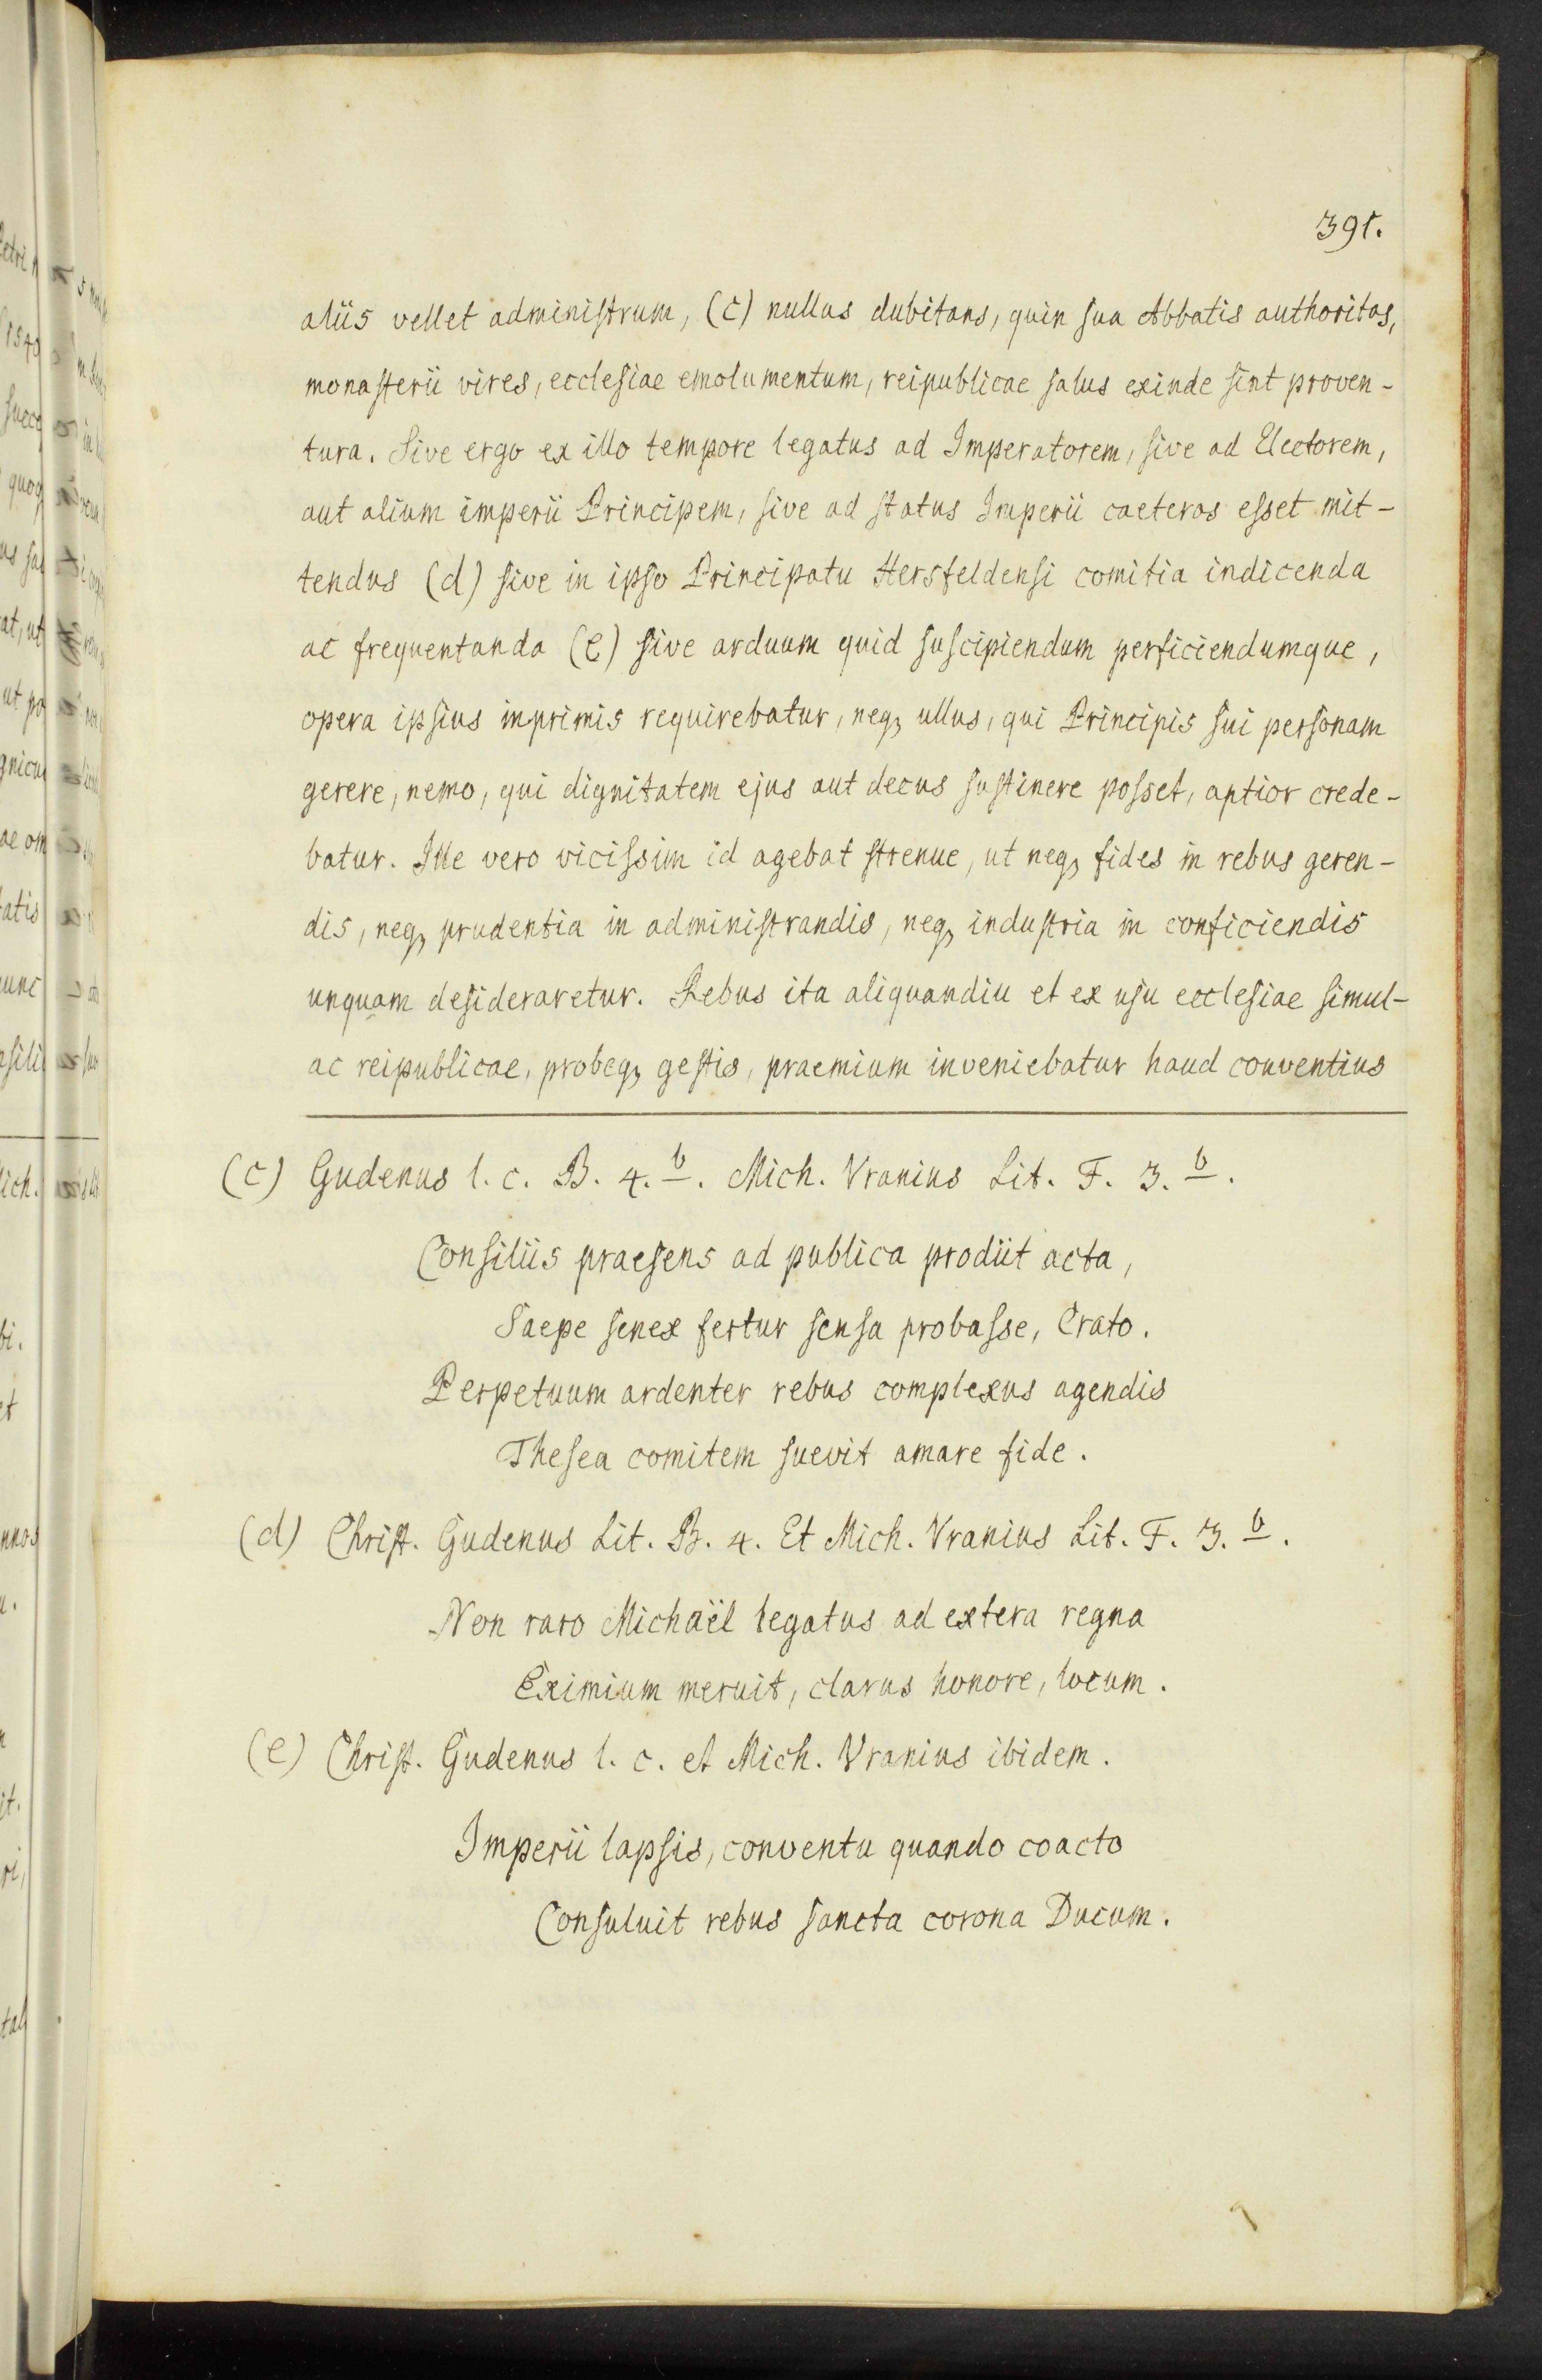 391.
aliis vellet administrum, (c) nullus dubitans, quin sua Abbatis authoritas,
monasterii vires, ecclesiae emolumentum, reipublicae salus exinde sint proven-
tura. Sive ergo ex illo tempore legatus ad Imperatorem, sive ad Electorem,
aut alium imperii Principem, sive ad status Imperii caeteros esset mit-
tendus (d) sive in ipso Principatu Hersfeldensi comitia indicenda
ac frequentanda (e) sive arduum quid suscipiendum perficiendumque,
opera ipsius inprimis requirebatur, neq, ullus, qui Principis sui personam
gerere, nemo, qui dignitatem ejus aut decus sustinere posset, aptior crede-
batur. Ille vero vicissim id agebat strenue, ut neq, fides in rebus geren-
dis, neq, prudentia in administrandis, neq, industria in conficiendis
unquam desideraretur. Rebus ita aliquandiu et ex usu ecclesiae simul-
ac reipublicae, probeq, gestis, praemium inveniebatur haud conventius
(c) Gudenus l. c. B. 4. b. Mich. Vranius Lit. F. 3. b.
Consiliis praesens ad publica prodiit acta,
Saepe senex fertur sensa probasse, Crato.
Perpetuum ardenter rebus complexus agendis
Thesea comitem suevit amare fide.
(d) Christ. Gudenus Lit. B. 4. Et Mich. Vranius Lit. F. 3. b.
Non raro Michaël legatus ad extera regna
Eximium meruit, clarus honore, locum.
(e) Christ. Gudenus l. c. et Mich. Vranius ibidem.
Imperii lapsis, conventu quando coacto
Consuluit rebus sancta corona Ducum.